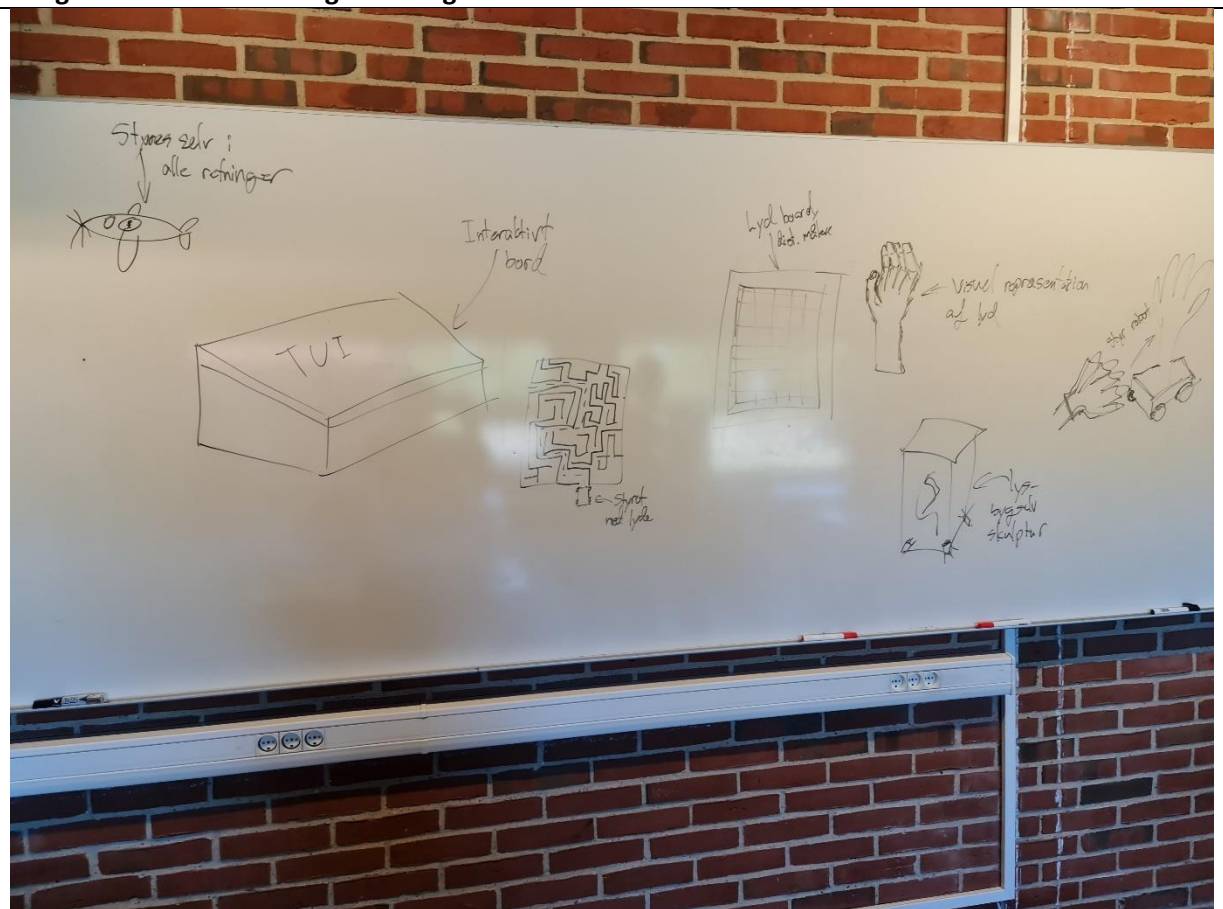 Styres selv i
alle retninger
Interaktivt
bord
TUI
styret
med lyde
Lyd board,
dist. målere
visuel repræsentation
af lyd
styr robot
lys-
bygselv
skulptur